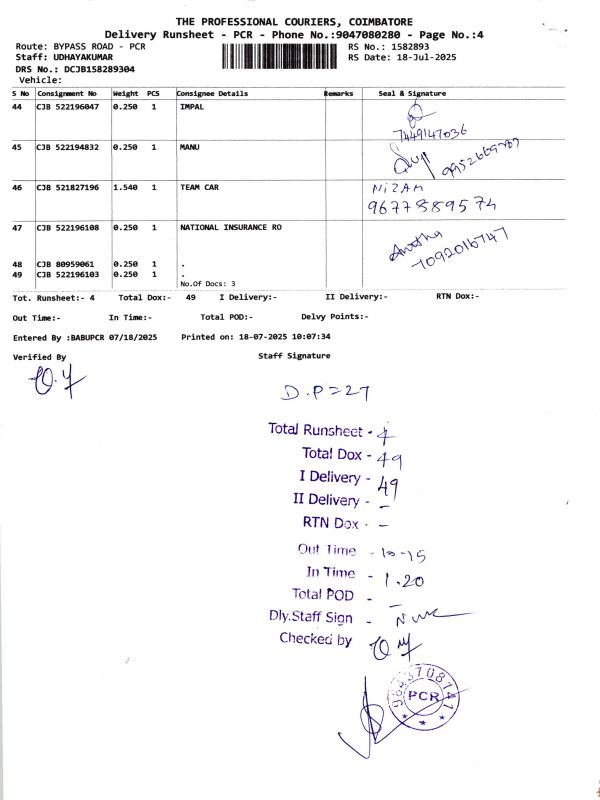 THE PROFESSIONAL COURIERS, COIMBATORE
Delivery Runsheet - PCR - Phone No.:9047080280 - Page No.:4
Route: BYPASS ROAD - PCR RS No.: 1582893
Staff: UDHAYAKUMAR RS Date: 18-Jul-2025
DRS No.: DCJB158289304
Vehicle:
S No Consignment No Weight PCS Consignee Details Remarks Seal & Signature
44 CJB 522196047 0.250 1 IMPAL
7449147036
45 CJB 522194832 0.250 1 MANU
46 CJB 521827196 1.540 1 TEAM CAR NiZAM
9677889574
47 CJB 522196108 0.250 1 NATIONAL INSURANCE RO
7092016747
48 CJB 80959061 0.250 1 .
49 CJB 522196103 0.250 1 .
No.Of Docs: 3
Tot. Runsheet:- 4 Total Dox:- 49 I Delivery:- II Delivery:- RTN Dox:-
Out Time:- In Time:- Total POD:- Delvy Points:-
Entered By :BABUPCR 07/18/2025 Printed on: 18-07-2025 10:07:34
Verified By Staff Signature
D.P=27
Total Runsheet - 4
Total Dox - 49
I Delivery - 49
II Delivery - -
RTN Dox - -
Out Time - 10-15
In Time - 1.20
Total POD - -
Dly.Staff Sign -
Checked by
PCR